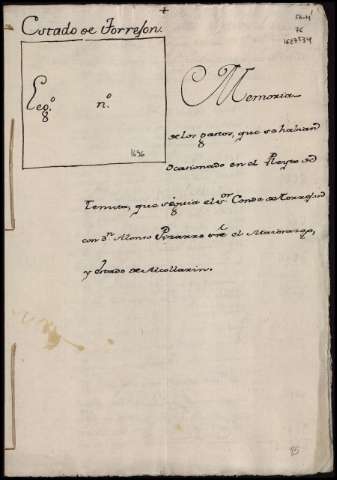 +
Estado de Torrejon.
Leg.º nº
8
1696
Memoria
de los gastos, que se habian
ocasionado en el Pleyto de
Tenuta, que seguia el Sor Conde de Torrejon
con Dn Alonso Pizarro sre el Maiorazgo,
y estado de Alcollarin.